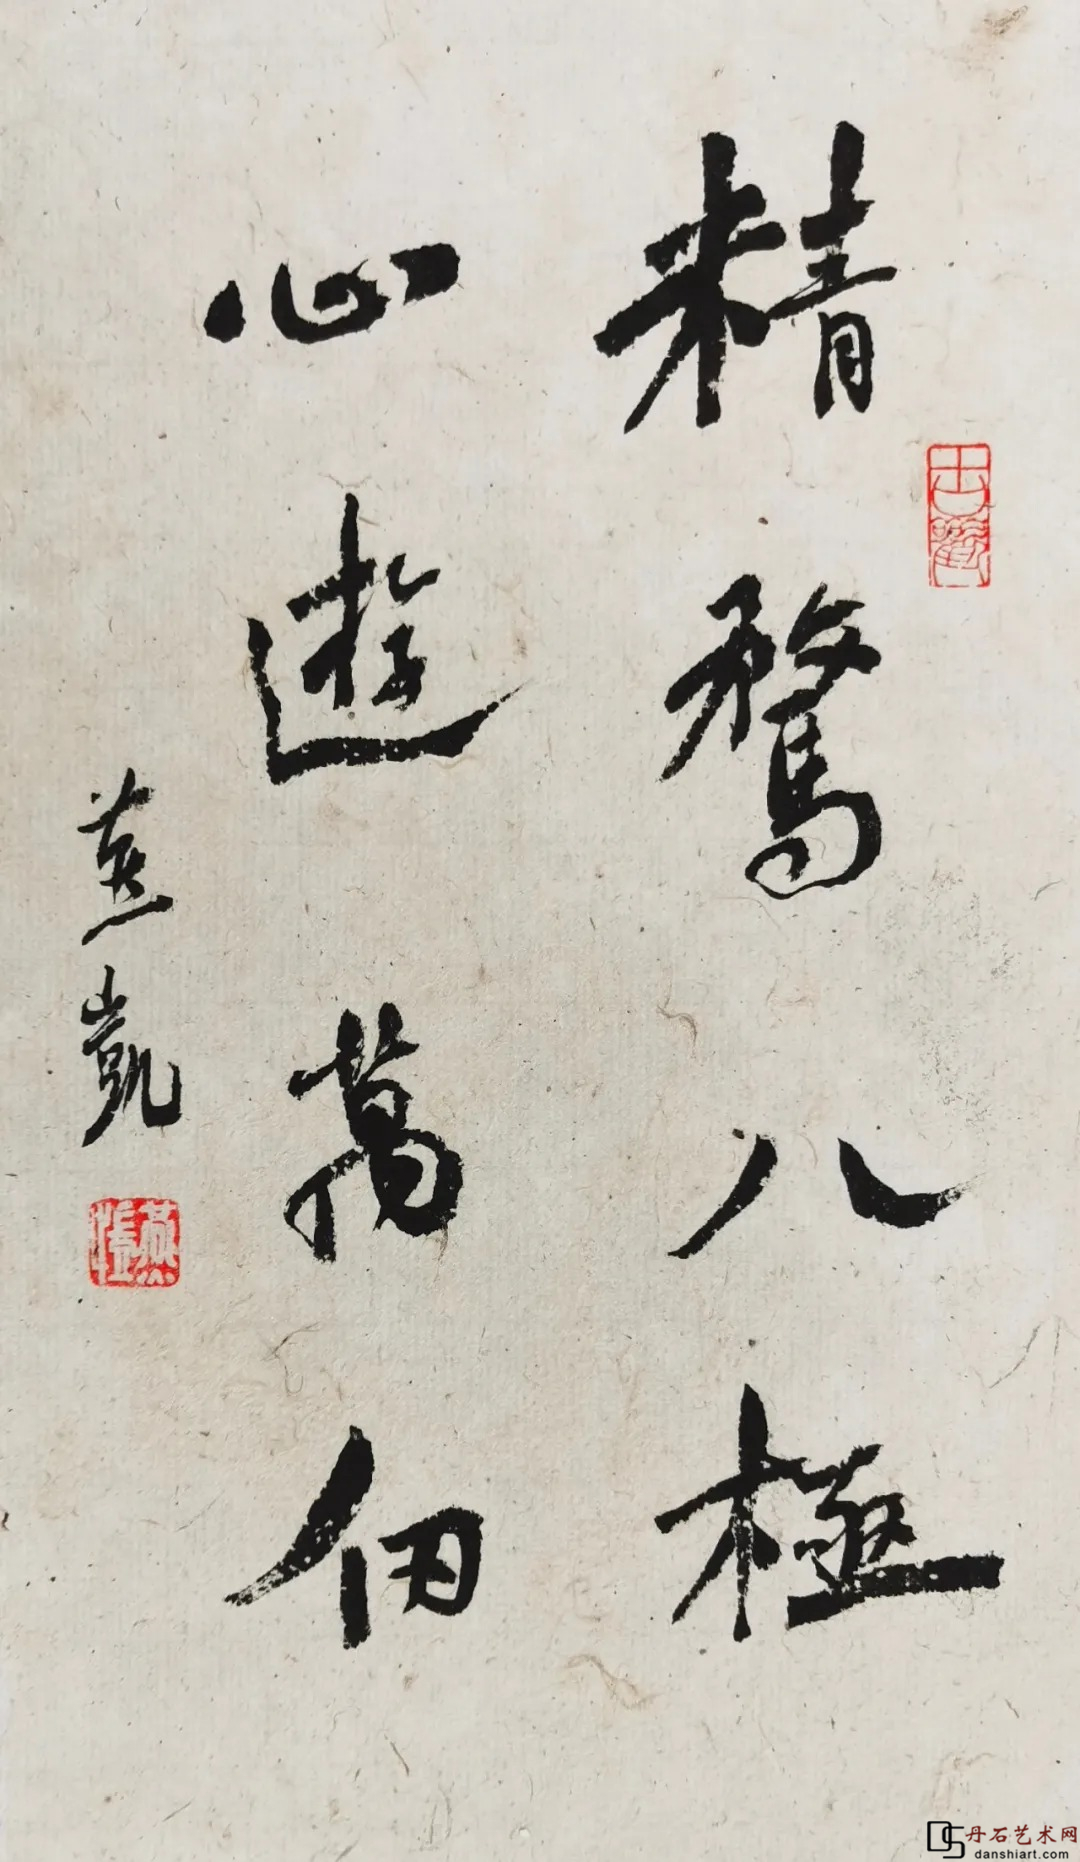 精骛八極
心遊萬仞
燕凱
丹石艺术网
danshiart.com